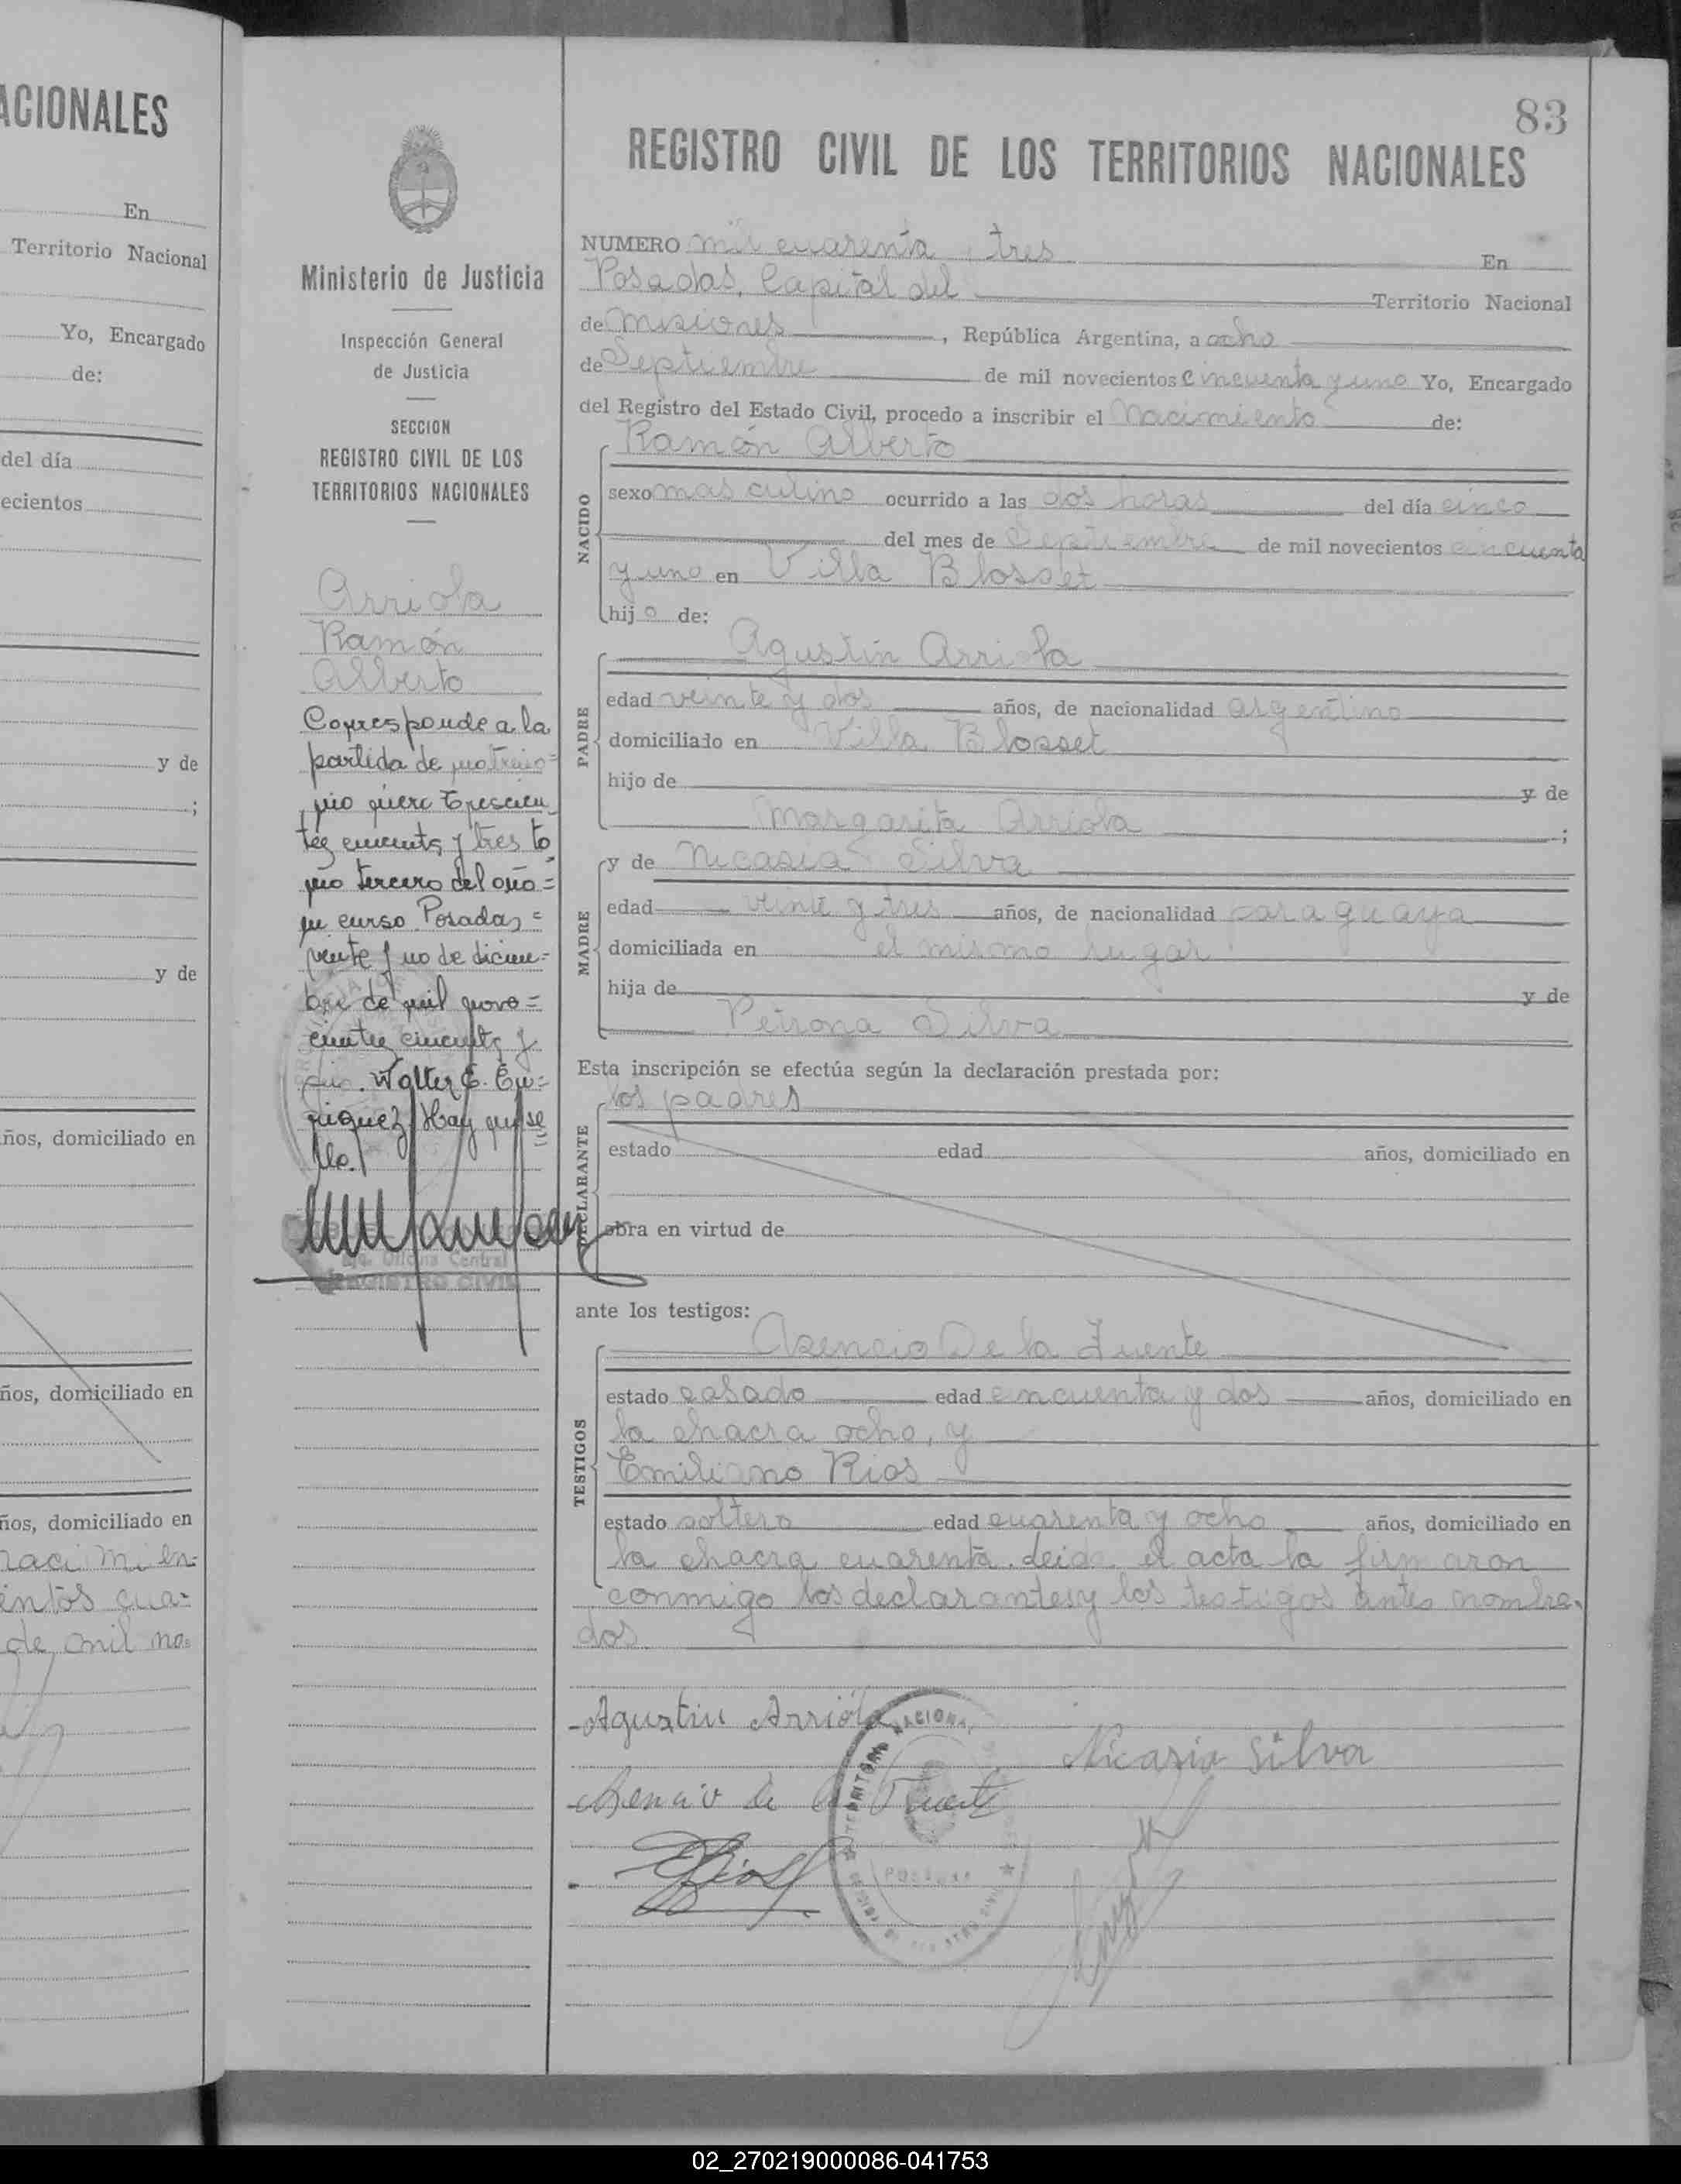 ACIONALES
En
Territorio Nacional
Yo, Encargado
de:
del día
ecientos
y de
;
y de
ños, domiciliado en
ños, domiciliado en
ños, domiciliado en
naci mien-
entos cua-
de mil no=
Ministerio de Justicia
Inspección General
de Justicia
SECCION
REGISTRO CIVIL DE LOS
TERRITORIOS NACIONALES
Arriola
Ramón
Alberto
Corresponde a la
partida de matrimo=
nio número trescien
tos cincuenta y tres to
mo tercero del año=
en curso. Posadas=
veinte y uno de diciem=
bre de mil nove=
cientos cincuenta y
uno. Walter E. En=
riquez. Hay un se
llo.
Oficina Central
REGISTRO CIVIL
83
REGISTRO CIVIL DE LOS TERRITORIOS NACIONALES
NUMERO mil cuarenta y tres En
Posadas, Capital del Territorio Nacional
de Misiones , República Argentina, a ocho
de Septiembre de mil novecientos cincuenta y uno Yo, Encargado
del Registro del Estado Civil, procedo a inscribir el Nacimiento de:
Ramón Alberto
NACIDO
sexo masculino ocurrido a las dos horas del día cinco
del mes de Septiembre de mil novecientos cincuenta
y uno en Villa Blosset
hijo de:
Agustín Arriola
PADRE
edad veinte y dos años, de nacionalidad argentino
domiciliado en Villa Blosset
hijo de y de
Margarita Arriola ;
y de Nicasia Silva
MADRE
edad veinte y tres años, de nacionalidad paraguaya
domiciliada en el mismo lugar
hija de y de
Petrona Silva
Esta inscripción se efectúa según la declaración prestada por:
los padres
DECLARANTE
estado edad años, domiciliado en
obra en virtud de
ante los testigos:
Asencio De la Fuente
TESTIGOS
estado casado edad cincuenta y dos años, domiciliado en
la chacra ocho, y
Emiliano Rios
estado soltero edad cuarenta y ocho años, domiciliado en
la chacra cuarenta. Leida el acta la firmaron
conmigo los declarantes y los testigos antes nombra-
dos.
Agustin Arriola
Nicasia Silva
Asencio de la Fuente
ERios
TERRITORIO NACIONAL
POSADAS
02_270219000086-041753